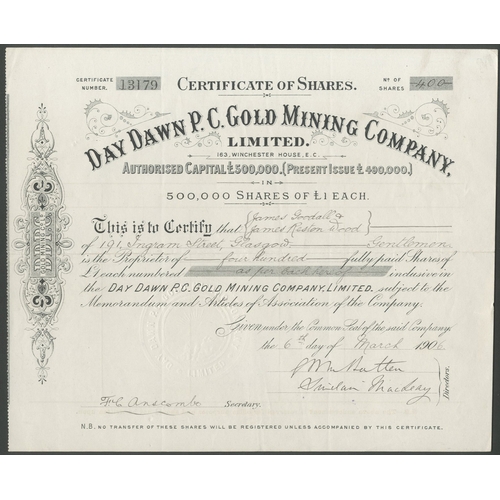 CERTIFICATE NUMBER, 13179
CERTIFICATE OF SHARES.
No OF SHARES 400
DAY DAWN P.C. GOLD MINING COMPANY,
LIMITED.
163, WINCHESTER HOUSE, E.C.
AUTHORISED CAPITAL £500,000, (PRESENT ISSUE £490,000.)
IN
500,000 SHARES OF £1 EACH.
This is to Certify that James Goodall &
James Reston Wood
of 191 Ingram Street, Glasgow Gentlemen
is the Proprietor of four hundred fully paid Shares of
£1 each numbered as per back hereof inclusive in
the DAY DAWN P.C. GOLD MINING COMPANY, LIMITED. subject to the
Memorandum and Articles of Association of the Company.
Given under the Common Seal of the said Company,
the 6th day of March 1906
Sinclair Macleay
Directors.
F C Anscombe Secretary.
N.B. NO TRANSFER OF THESE SHARES WILL BE REGISTERED UNLESS ACCOMPANIED BY THIS CERTIFICATE.